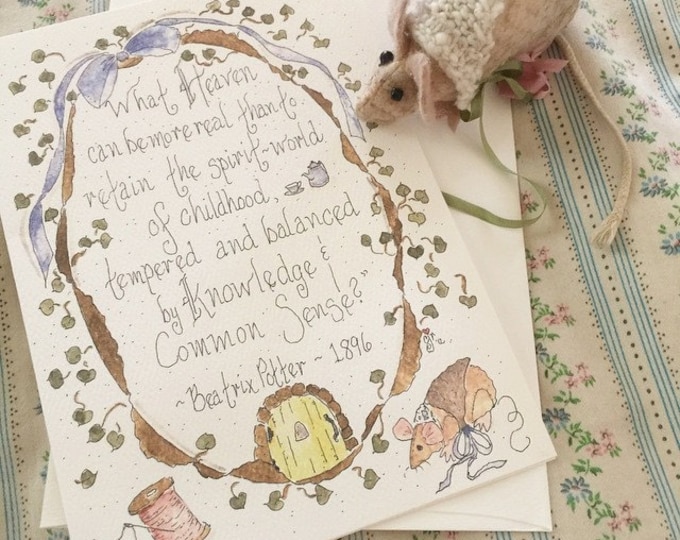 What Heaven
can be more real than to
retain the spirit-world
of childhood,
tempered and balanced
by Knowledge &
Common Sense?"
~Beatrix Potter ~ 1896